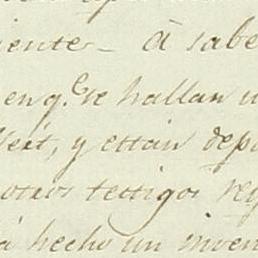 iente - á sabe
en q.e se hallan
y estan depo
otros testigos
á hecho un inven